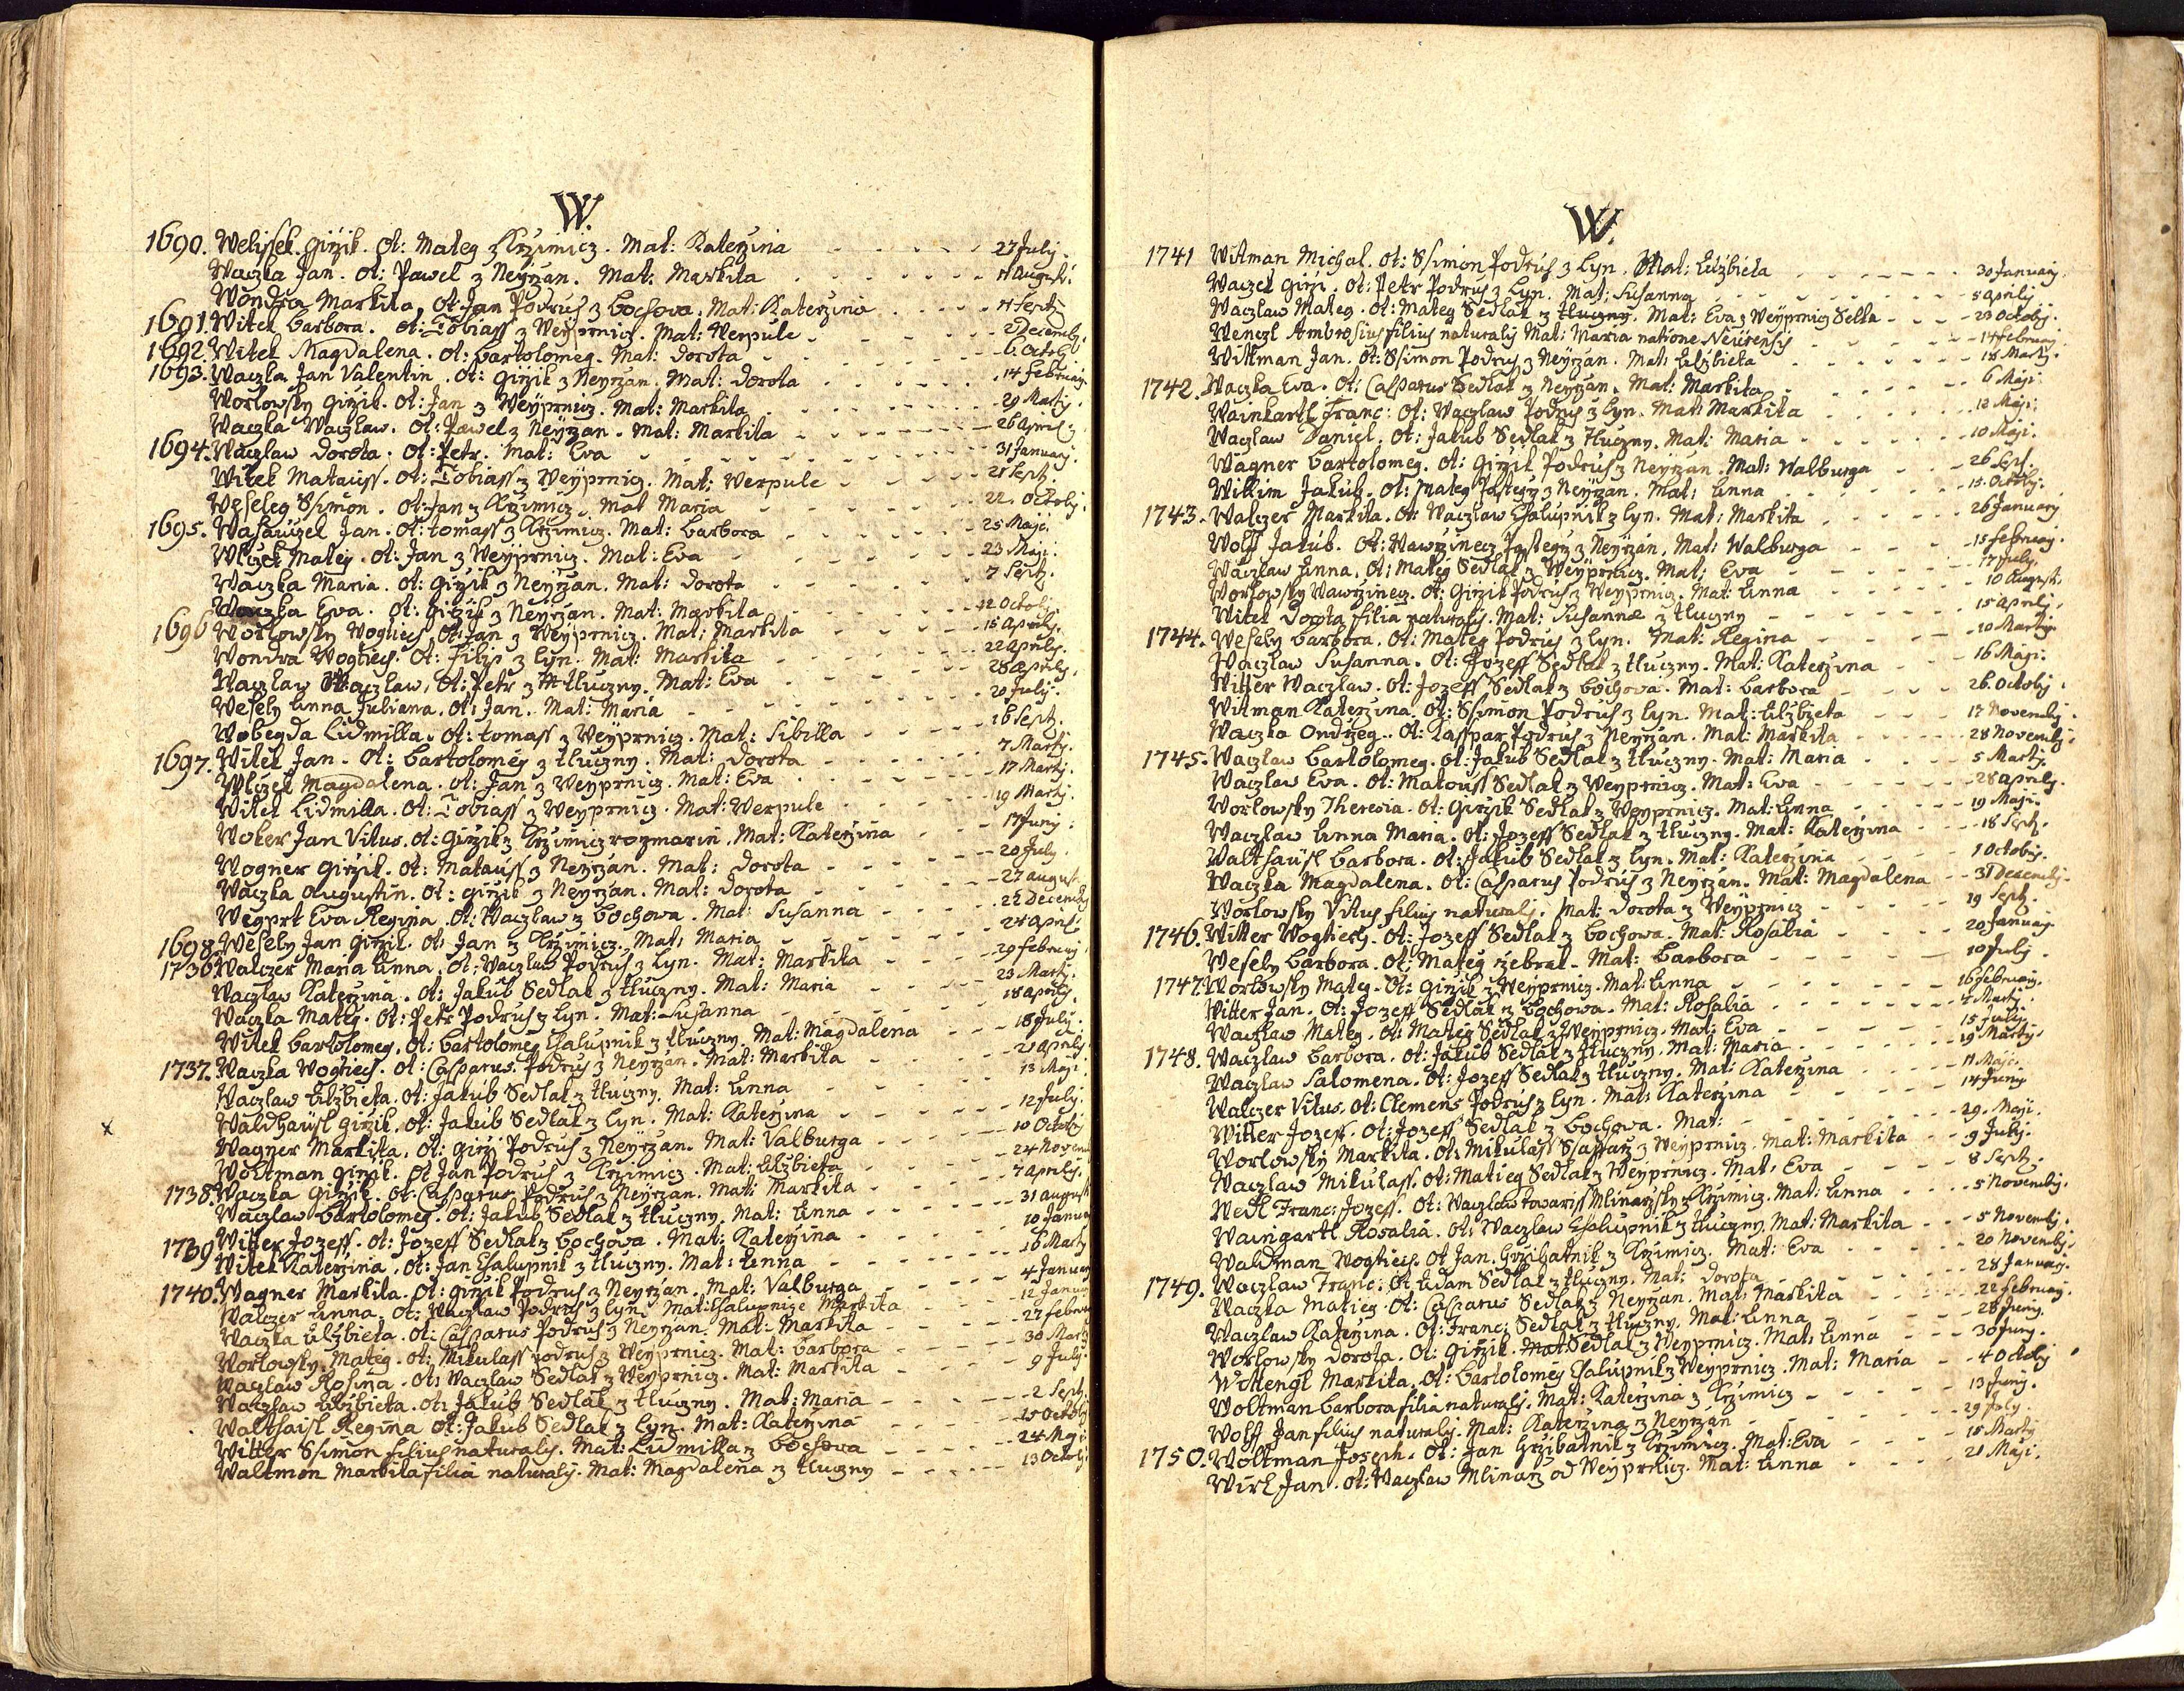 W.
1690. Welissek Girzik. Ot: Mateg z Krzimicz. Mat: Katerzina 27 July.
Waczka Jan. Ot: Pawel z Neyrzan. Mat: Markita Augusti.
Wondra Markita. Ot: Jan Podruh z Bochova. Mat: Katerzina Septz
1691. Witek Barbora. Ot: Tobiass z Weyprnicz. Mat: Verpule Decemb.
1692. Witek Magdalena. Ot: Bartolomeg. Mat: Dorota 6 Octob
1693. Waczka Jan Valentin. Ot: Girzik z Neyrzan. Mat: Dorota 14 February
Worlowsky Girzik. Ot: Jan z Weyprnicz. Mat: Markita 29 Martij.
Waczka Waczlaw. Ot: Pawel z Neyrzan. Mat: Markita 26 April
1694. Waczlaw Dorota. Ot: Petr. Mat: Eva 31 January.
Witek Matauss. Ot: Tobiass z Weyprnicz. Mat: Verpule 21 Sept.
Weseleg Ssimon. Ot: Jan z Krzimicz. Mat Maria 22. Octobj.
1695. Wasauczel Jan. Ot: Tomass z Krzimicz. Mat: Barbora 25 Maji.
Wlczek Mateg. Ot: Jan z Weyprnicz. Mat: Eva 23 Maji.
Waczka Maria. Ot: Girzik z Neyrzan. Mat: Dorota 7 Sept.
Waczka Eva. Ot: Girzik z Neyrzan. Mat: Markita 12 Octobj.
1696 Worlowsky Wogtiech. Ot: Jan z Weyprnicz. Mat: Markita 15 Aprilj.
Wondra Wogtiech. Ot: Filip z Lyn. Mat: Markita 22 Aprilj.
Waczlaw Waczlaw. Ot: Petr z Tluczny. Mat: Eva 28 Aprilj.
Wesely Anna Juliana. Ot: Jan. Mat: Maria 20 Julij.
Wobegda Lidmilla. Ot: Tomass z Weyprnicz. Mat: Sibilla 16 Sept.
1697. Witek Jan. Ot: Bartolomeg z Tluczny. Mat: Dorota 7 Marty.
Wlczek Magdalena. Ot: Jan z Weyprnicz. Mat: Eva 17 Martij.
Witek Lidmilla. Ot: Tobiass z Weyprnicz. Mat: Verpule 19 Martij.
Woker Jan Vitus. Ot: Girzik z Krzimicz rozmarin. Mat: Katerzina 17 Junij.
Wogner Girzik. Ot: Matauss z Neyrzan. Mat: Dorota 20 July.
Waczka Augustin. Ot: Girzik z Neyrzan. Mat: Dorota 27 August
Wegprt Eva Regina. Ot: Waczlaw z Bochowa. Mat: Susanna 22 Decemb
1698. Wesely Jan Girzik. Ot: Jan z Krzimicz. Mat: Maria 24 April
1736. Walczer Maria Anna. Ot: Waczlaw Podruh z Lyn. Mat: Markita 29 February
Waczlaw Katerzina. Ot: Jakub Sedlak z Tluczny. Mat: Maria 23 Marty.
Waczka Mateg. Ot: Petr Podruh z Lyn. Mat: Susanna 18 Aprilj.
Witek Bartolomeg. Ot: Bartolomeg Chalupnik z Tluczny. Mat: Magdalena 18 July.
1737. Waczka Wogtiech. Ot: Casparus Podruh z Neyrzan. Mat: Markita 21 Aprilj
Waczlaw Alzbieta. Ot: Jakub Sedlak z Tluczny. Mat: Anna 13 Maji
Waldhaüsl Girzik. Ot: Jakub Sedlak z Lyn. Mat: Katerzina 12 July.
x Wagner Markita. Ot: Girzi Podruh z Neyrzan. Mat: Valburga 10 Octobj
Woltman Girzik. Ot Jan Podruh z Krzimicz. Mat: Alzbieta 24 Novem
1738. Waczka Girzik. Ot: Casparus Podruh z Neyrzan. Mat: Markita 7 Aprilj.
Waczlaw Bartolomeg. Ot: Jakub Sedlak z Tluczny. Mat: Anna 31 August
1739 Witter Jozeff. Ot: Jozeff Sedlak z Bochowa. Mat: Katerzina 10 Janua
Witek Katerzina. Ot: Jan Chalupnik z Tluczny. Mat: Anna 16 Marty
1740. Wagner Markita. Ot: Girzik Podruh z Neyrzan. Mat: Valburga 4 January
Walczer Anna. Ot: Waczlaw Podruh z Lyn. Mat: Chalupnize Markita 12 Janua
Waczka Alzbieta. Ot: Casparus Podruh z Neyrzan. Mat: Markita 27 Februa
Worlowsky Mateg. Ot: Mikulass Podruh z Weyprnicz. Mat: Barbora 30 Mart
Waczlaw Rosina. Ot: Waczlaw Sedlak z Weyprnicz. Mat: Markita 9 July.
Waczlaw Alzbieta. Ot: Jakub Sedlak z Tluczny. Mat: Maria 2 Sept.
Walthaisl Regina Ot: Jakub Sedlak z Lyn. Mat: Katerzina 15 Octobj
Witter Ssimon filius naturalij. Mat: Lidmilla z Bochova 24 Maji
Waltmon Markita filia naturalij. Mat: Magdalena z Tluczny 13 Octobj
W.
1741 Witman Michal. Ot: Ssimon Podruh z Lyn. Mat: Alzbieta 30 January.
Waczel Girzi. Ot: Petr Podruh z Lyn. Mat: Susanna 5 Aprilj
Waczlaw Mateg. Ot: Mateg Sedlak z Tluczny. Mat: Eva z Weyprnicz Selka 23 Octobj.
Wenczl Ambrosius filius naturalij Mat: Maria natione Neürensis 14 February.
Wittman Jan. Ot: Ssimon Podruh z Neyrzan. Mat: Alzbieta 18 Martij.
1742. Waczka Eva. Ot: Casparus Sedlak z Neyrzan. Mat: Markita 6 Maji.
Wainhartl Franc: Ot: Waczlaw Podruh z Lyn. Mat: Markita 12 Maji.
Waczlaw Daniel. Ot: Jakub Sedlak z Tluczny. Mat: Maria 10 Maji.
Wagner Bartolomeg. Ot: Girzik Podruh z Neyrzan. Mat: Walburga 26 Sept.
Wilkim Jakub. Ot: Mateg z Neyrzan. Mat: Anna 15 Octobj.
1743. Walczer Markita. Ot: Waczlaw Chalupnik z Lyn. Mat: Markita 26 January
Wolff Jakub. Ot: Wawrzinecz z Neyrzan. Mat: Walburga 15 Februay.
Waczlaw Anna. Ot: Mateg Sedlak z Weyprnicz. Mat: Eva 17 July.
Worlowsky Wawrzinecz. Ot: Girzik Podruh z Weyprnicz. Mat: Anna 10 Augusti.
Witek Dorota filia naturalij. Mat: Susanna z Tluczny 15 Aprilj.
1744. Wesely Barbora. Ot: Mateg Podruh z Lyn. Mat: Regina 10 Martij
Waczlaw Susanna. Ot: Jozeff Sedlak z Tluczny. Mat: Katerzina 16 Maji.
Witter Waczlaw. Ot: Jozeff Sedlak z Bochova. Mat: Barbora 26. Octobj.
Witman Katerzina. Ot: Ssimon Podruh z Lyn. Mat: Alzbieta 17 Novembj.
Waczka Ondrzeg. Ot: Kasspar Podruh z Neyrzan. Mat: Markita 28 Novembj.
1745. Waczlaw Bartolomeg. Ot: Jakub Sedlak z Tluczny. Mat: Maria 5 Martij.
Waczlaw Eva. Ot: Matouss Sedlak z Weyprnicz. Mat: Eva 28 Aprilj.
Worlowsky Theresia. Ot: Girzik Sedlak z Weyprnicz. Mat: Anna 19 Maji.
Waczlaw Anna Maria. Ot: Jozeff Sedlak z Tluczny. Mat: Katerzina 18 Sept.
Walthaüsl Barbora. Ot: Jakub Sedlak z Lyn. Mat: Katerzina 1 Octobris.
Waczka Magdalena. Ot: Casparus Podruh z Neyrzan. Mat: Magdalena 31 Decembj.
Worlowsky Vitus filius naturalj. Mat: Dorota z Weyprnicz 19 Sept.
1746. Witter Wogtiech. Ot: Jozeff Sedlak z Bochowa. Mat: Rosalia 20 January
Wesely Barbora. Ot: Mateg zebrak. Mat: Barbora 10 July.
1747. Worlowsky Mateg. Ot: Girzik z Weyprnicz. Mat: Anna 16 February.
Witter Jan. Ot: Jozeff Sedlak z Bochowa. Mat: Rosalia 4 Martij.
Waczlaw Mateg. Ot: Mateg Sedlak z Weyprnicz. Mat: Eva 15 July.
1748. Waczlaw Barbora. Ot: Jakub Sedlak z Tluczny. Mat: Maria 19 Marty.
Waczlaw Salomena. Ot: Jozeff Sedlak z Tluczny. Mat: Katerzina 11 Maji.
Walczer Vitus. Ot: Clemens Podruh z Lyn. Mat: Katerzina 14 Juny
Witter Jozeff. Ot: Jozeff Sedlak z Bochowa. Mat: 29. Maji.
Worlowsky Markita. Ot: Mikulass Ssaffarz z Weyprnicz. Mat: Markita 9 July.
Waczlaw Mikulass. Ot: Matieg Sedlak z Weyprnicz. Mat: Eva 8 Sept.
Wedl Franc: Jozeff. Ot: Waczlaw towariss Mlinarzsky z Krzimicz. Mat: Anna 5 Novembj.
Waingartl Rosalia. Ot: Waczlaw Chalupnik z Tluczny. Mat: Markita 5 Novembj.
Waldman Wogtiech. Ot Jan Hrzibatnik z Krzimicz. Mat: Eva 20 Novembj.
1749. Waczlaw Franc: Ot Adam Sedlak z Tluczny. Mat: Dorota 28 January.
Waczka Matieg. Ot: Casparus Sedlak z Neyrzan. Mat: Markita 22 February.
Waczlaw Katerzina. Ot: Franc: Sedlak z Tluczny. Mat: Anna 28 Junij.
Worlowsky Dorota. Ot: Girzik. Mat Sedlak z Weyprnicz. Mat: Anna 30 Juny.
Wottengl Markita. Ot: Bartolomeg Chalupnik z Weyprnicz. Mat: Maria 4 Octobj
Woltman Barbora filia naturalij. Mat: Katerzina z Krzimicz 13 Junij.
Wolff Jan filius naturalij. Mat: Katerzina z Neyrzan 29 July.
1750. Woltman Joseph. Ot: Jan Hrzibatnik z Krzimicz. Mat: Eva 15 Martij
Wirl Jan. Ot: Waczlaw Mlinarz od Weyprnicz. Mat: Anna 21 Maji.